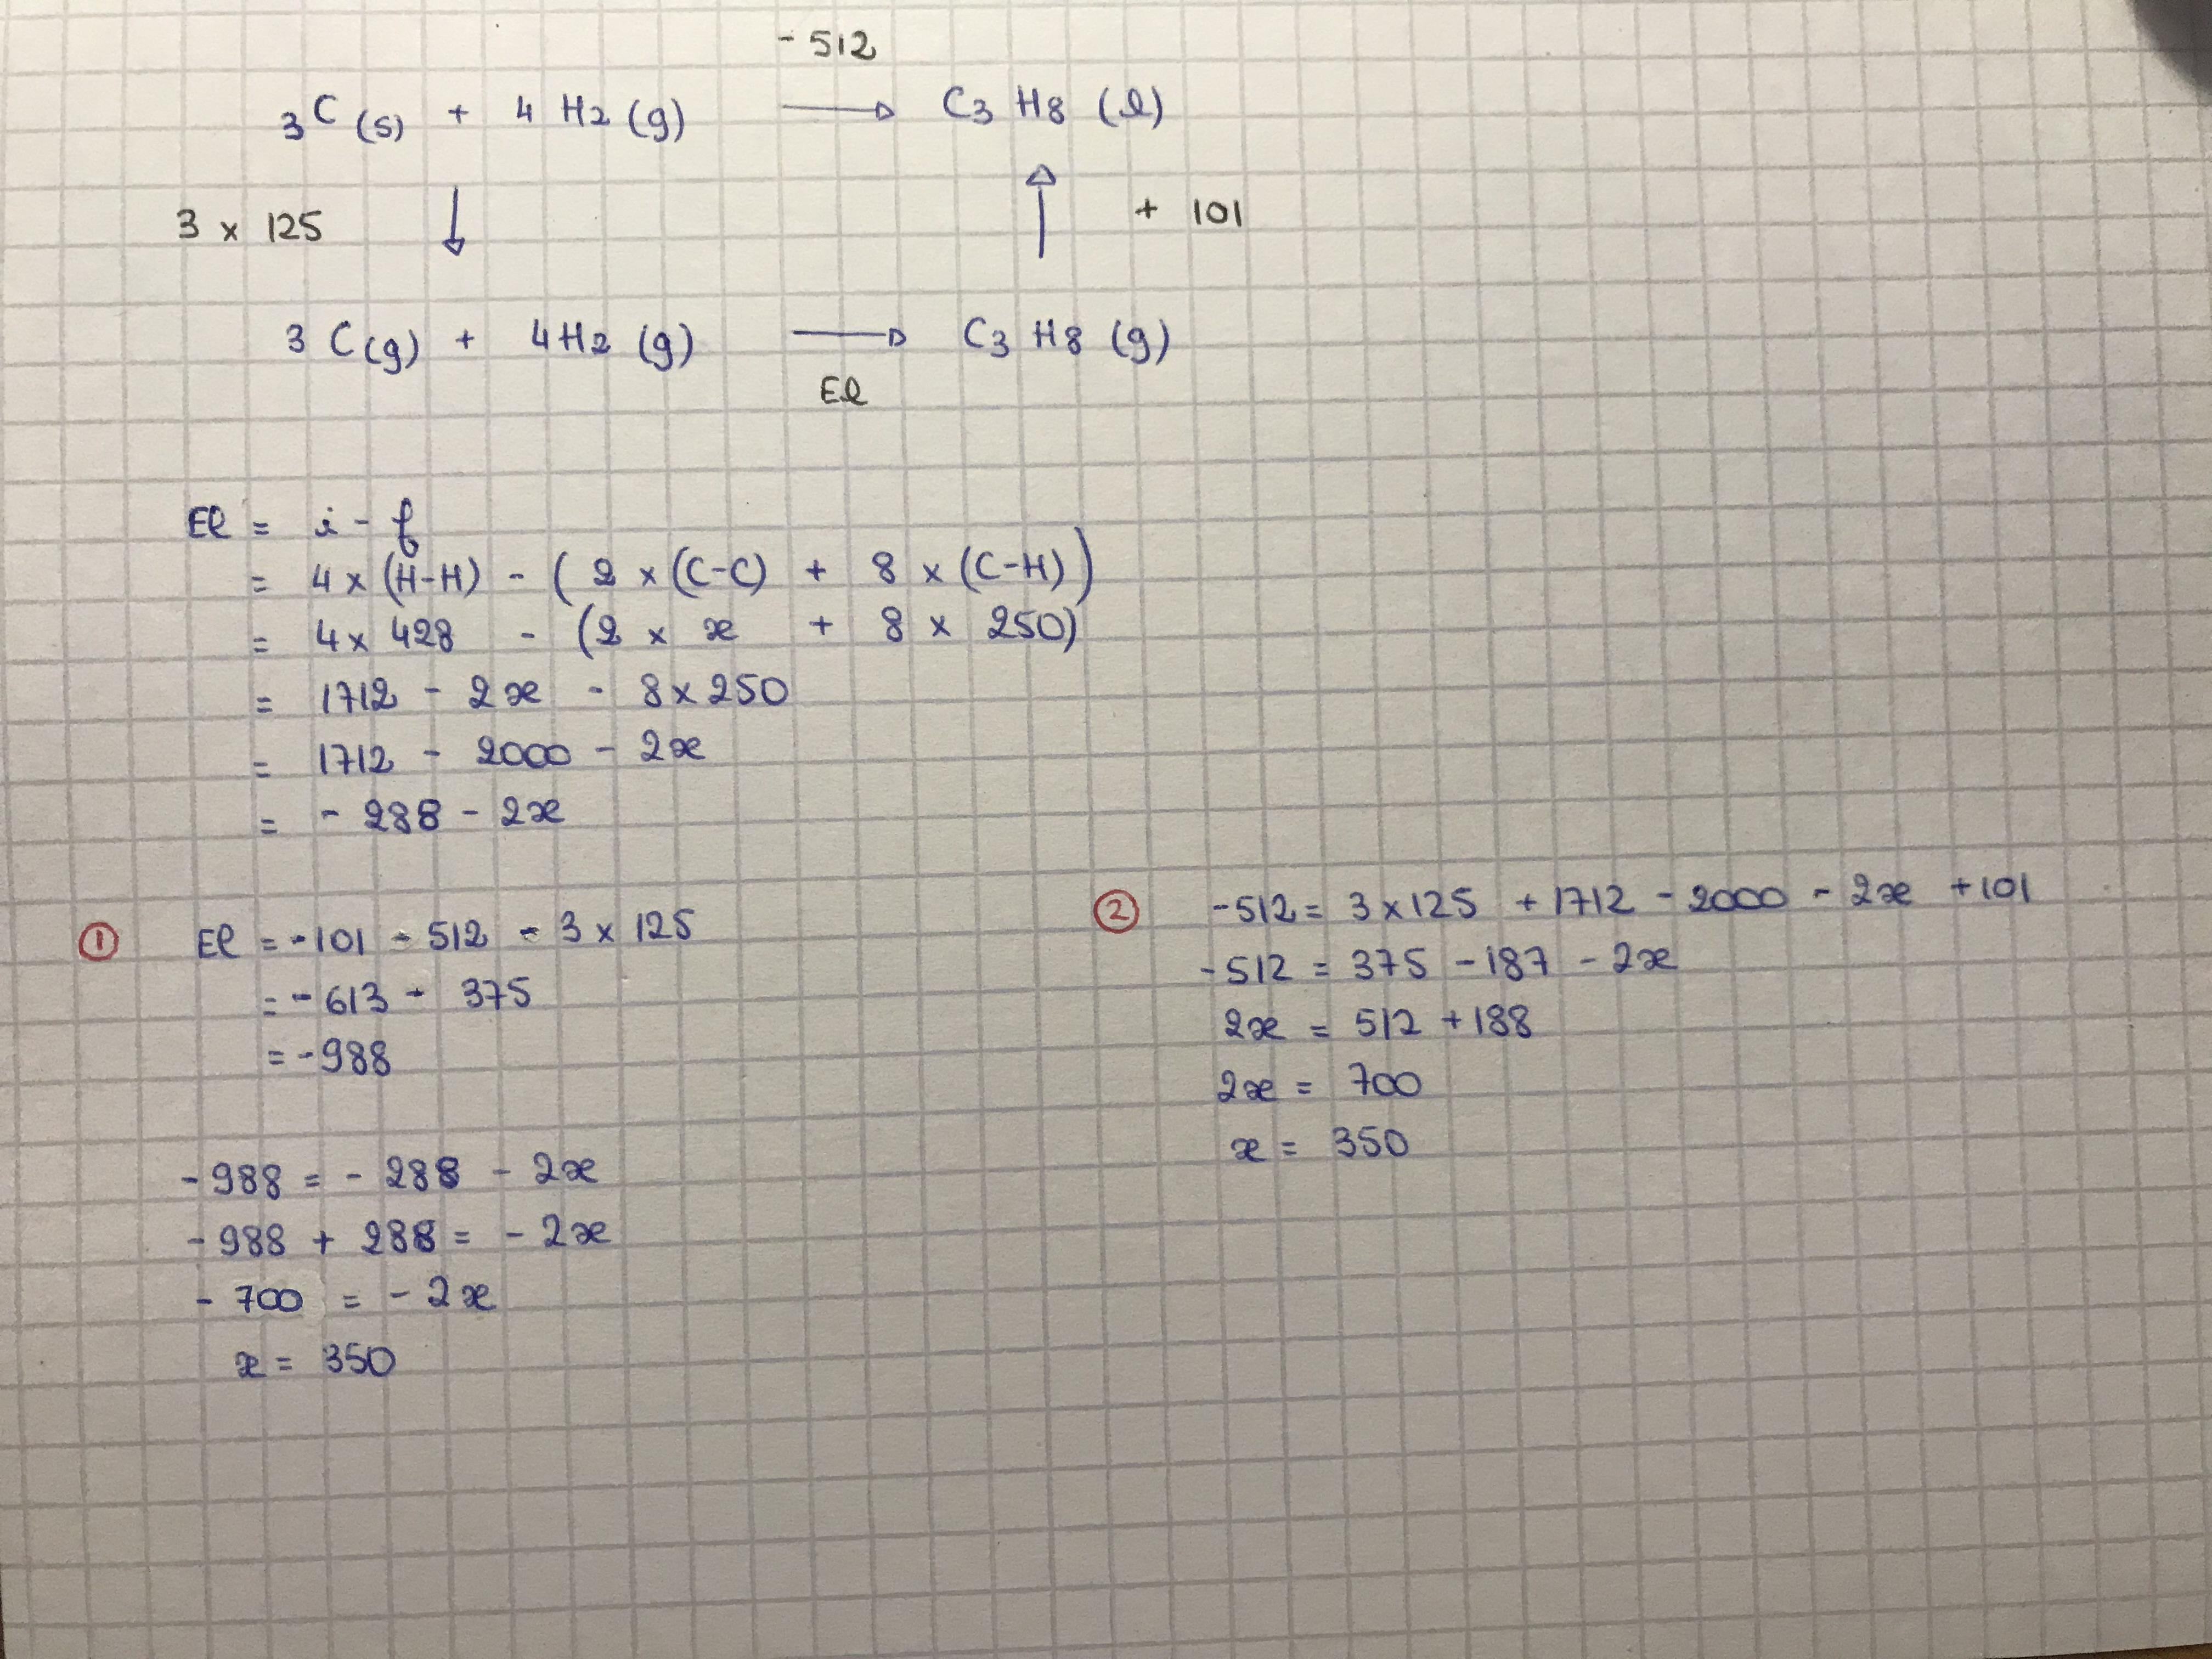 - 512
3C (s) + 4 H2 (g) → C3 H8 (l)
3 x 125 ↓ ↑ + 101
3 C(g) + 4H2 (g) → C3 H8 (g)
El
El = i - f
= 4 x (H-H) - ( 2 x (C-C) + 8 x (C-H) )
= 4 x 428 - (2 x x + 8 x 250)
= 1712 - 2x - 8 x 250
= 1712 - 2000 - 2x
= - 288 - 2x
① El = -101 - 512 - 3 x 125
= - 613 - 375
= -988
- 988 = - 288 - 2x
- 988 + 288 = - 2x
- 700 = - 2x
x = 350
② -512 = 3 x 125 + 1712 - 2000 - 2x + 101
-512 = 375 - 187 - 2x
2x = 512 + 188
2x = 700
x = 350